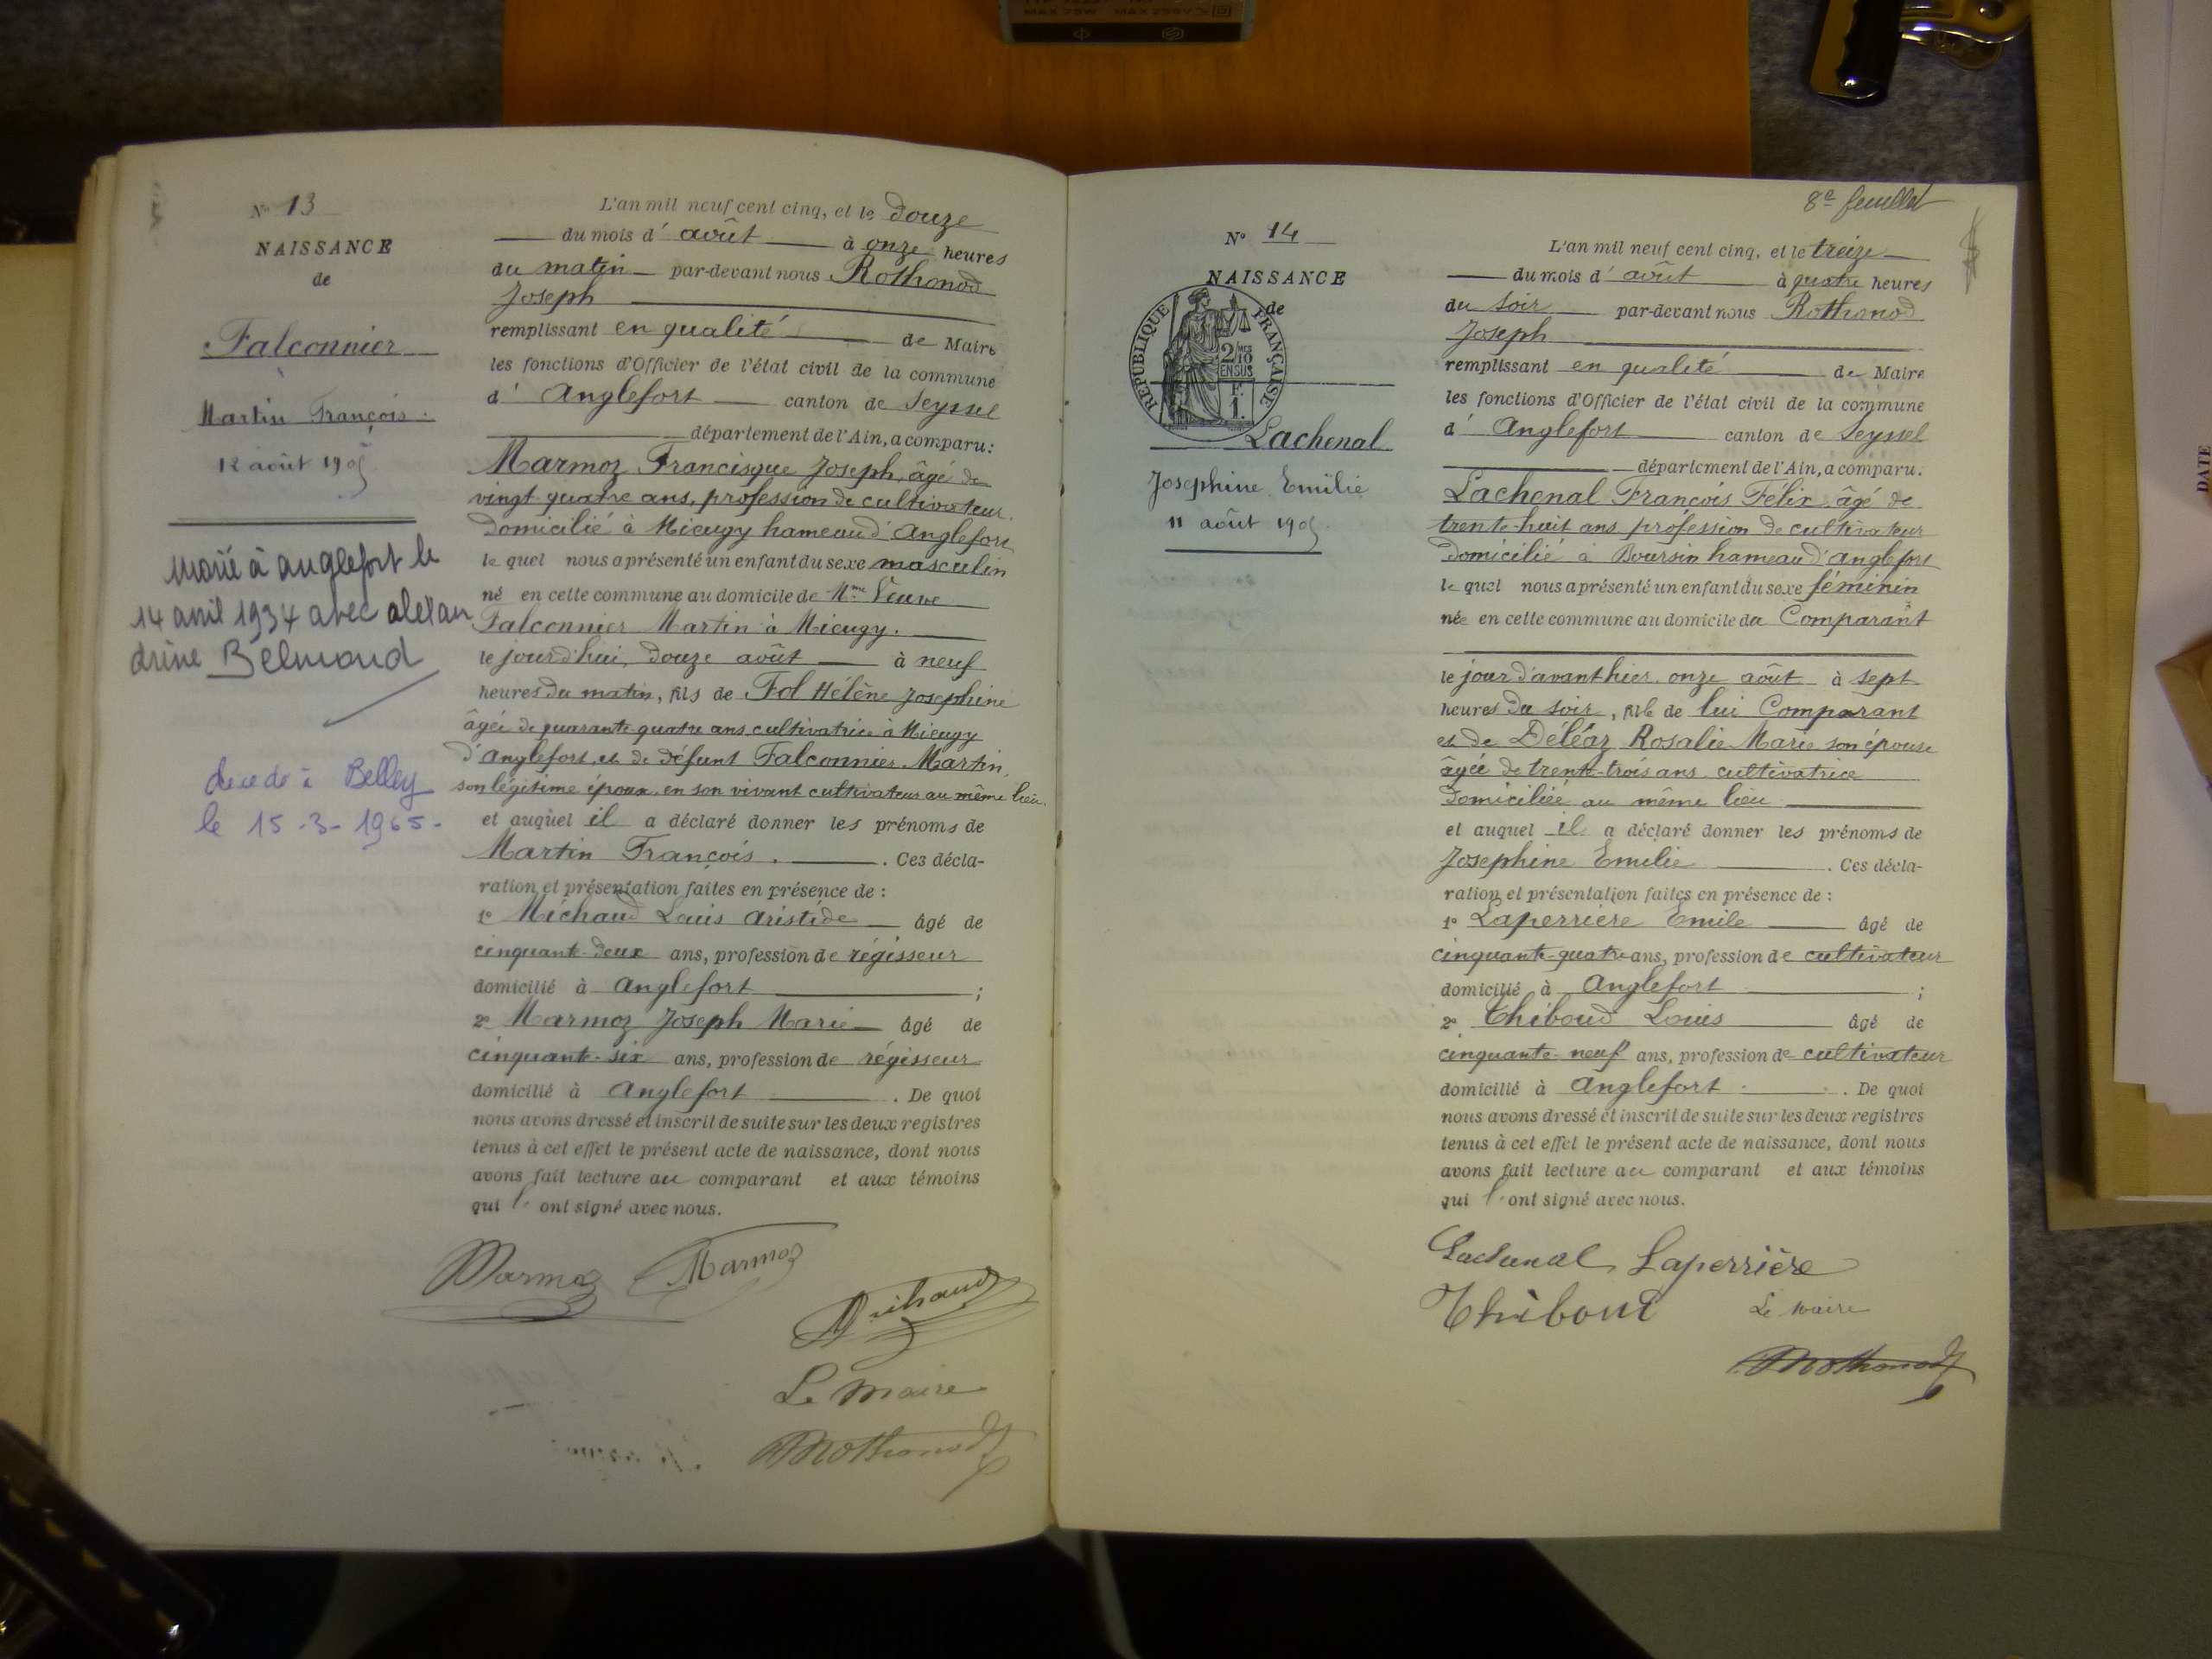 MAX 25W MAX 250V
N° 13
NAISSANCE
de
Falconnier
Martin François.
12 août 1905
Marié à anglefort le
14 avril 1934 avec alexan
drine Belmond
decede à Belley
le 15-3-1965-
L'an mil neuf cent cinq, et le douze
du mois d' août à onze heures
du matin par-devant nous Rothonod
Joseph
remplissant en qualité de Maire
les fonctions d'Officier de l'état civil de la commune
d' Anglefort canton de Seyssel
département de l'Ain, a comparu:
Marmoz Francisque Joseph, âgé de
vingt-quatre ans, profession de cultivateur
domicilié à Mieugy hameau d'Anglefort
le quel nous a présenté un enfant du sexe masculin
né en cette commune au domicile de Mme Veuve
Falconnier Martin à Mieugy.
le jourd'hui, douze août à neuf
heures du matin, fils de Fol Hélène Josephine
âgée de quarante-quatre ans cultivatrice à Mieugy
d'Anglefort, et de défunt Falconnier Martin,
son légitime époux, en son vivant cultivateur au même lieu.
et auquel il a déclaré donner les prénoms de
Martin François. . Ces décla-
ration et présentation faites en présence de :
1° Michaud Louis Aristide âgé de
cinquant-deux ans, profession de régisseur
domicilié à Anglefort ;
2° Marmoz Joseph Marie âgé de
cinquant-six ans, profession de régisseur
domicilié à Anglefort . De quoi
nous avons dressé et inscrit de suite sur les deux registres
tenus à cet effet le présent acte de naissance, dont nous
avons fait lecture au comparant et aux témoins
qui l' ont signé avec nous.
Marmoz Marmoz
Michaud
Le Maire
Rothonod
8e feuillet
N° 14
NAISSANCE
de
RÉPUBLIQUE FRANÇAISE
2/10
EN SUS
F.
1.
Lachenal
Josephine Emilie
11 août 1905
L'an mil neuf cent cinq, et le treize
du mois d' août à quatre heures
du soir par-devant nous Rothonod
Joseph
remplissant en qualité de Maire
les fonctions d'Officier de l'état civil de la commune
d' Anglefort canton de Seyssel
département de l'Ain, a comparu.
Lachenal François Félix, âgé de
trente-huit ans profession de cultivateur
domicilié à Boursin hameau d'Anglefort
le quel nous a présenté un enfant du sexe féminin
née en cette commune au domicile du Comparant
le jour d'avant hier onze août à sept
heures du soir, fille de lui Comparant
et de Déléaz Rosalie Marie son épouse
âgée de trente-trois ans cultivatrice
domiciliée au même lieu
et auquel il a déclaré donner les prénoms de
Josephine Emilie . Ces décla-
ration et présentation faites en présence de :
1° Laperrière Emile âgé de
cinquante-quatre ans, profession de cultivateur
domicilié à Anglefort ;
2° Thiboud Louis âgé de
cinquante-neuf ans, profession de cultivateur
domicilié à Anglefort . De quoi
nous avons dressé et inscrit de suite sur les deux registres
tenus à cet effet le présent acte de naissance, dont nous
avons fait lecture au comparant et aux témoins
qui l' ont signé avec nous.
Lachenal Laperrière
Thiboud Le Maire
Rothonod
DATE